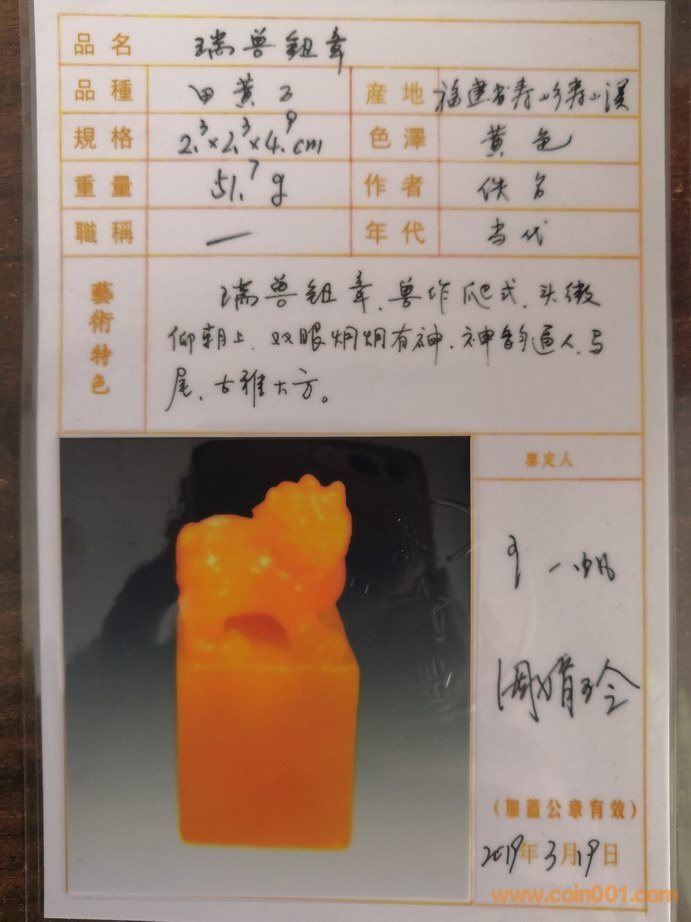 品名 瑞兽鈕章
品種 田黄石 産地 福建省寿山乡寿山溪
規格 2.3×2.3×4.9cm 色澤 黄色
重量 51.7g 作者 佚名
職稱 一 年代 当代
藝術特色
瑞兽鈕章,兽作爬式,头微
仰朝上,双眼炯炯有神,神韵逼人,马
尾,古雅大方。
鉴定人
(加蓋公章有效)
2019年3月19日
www.coin001.com